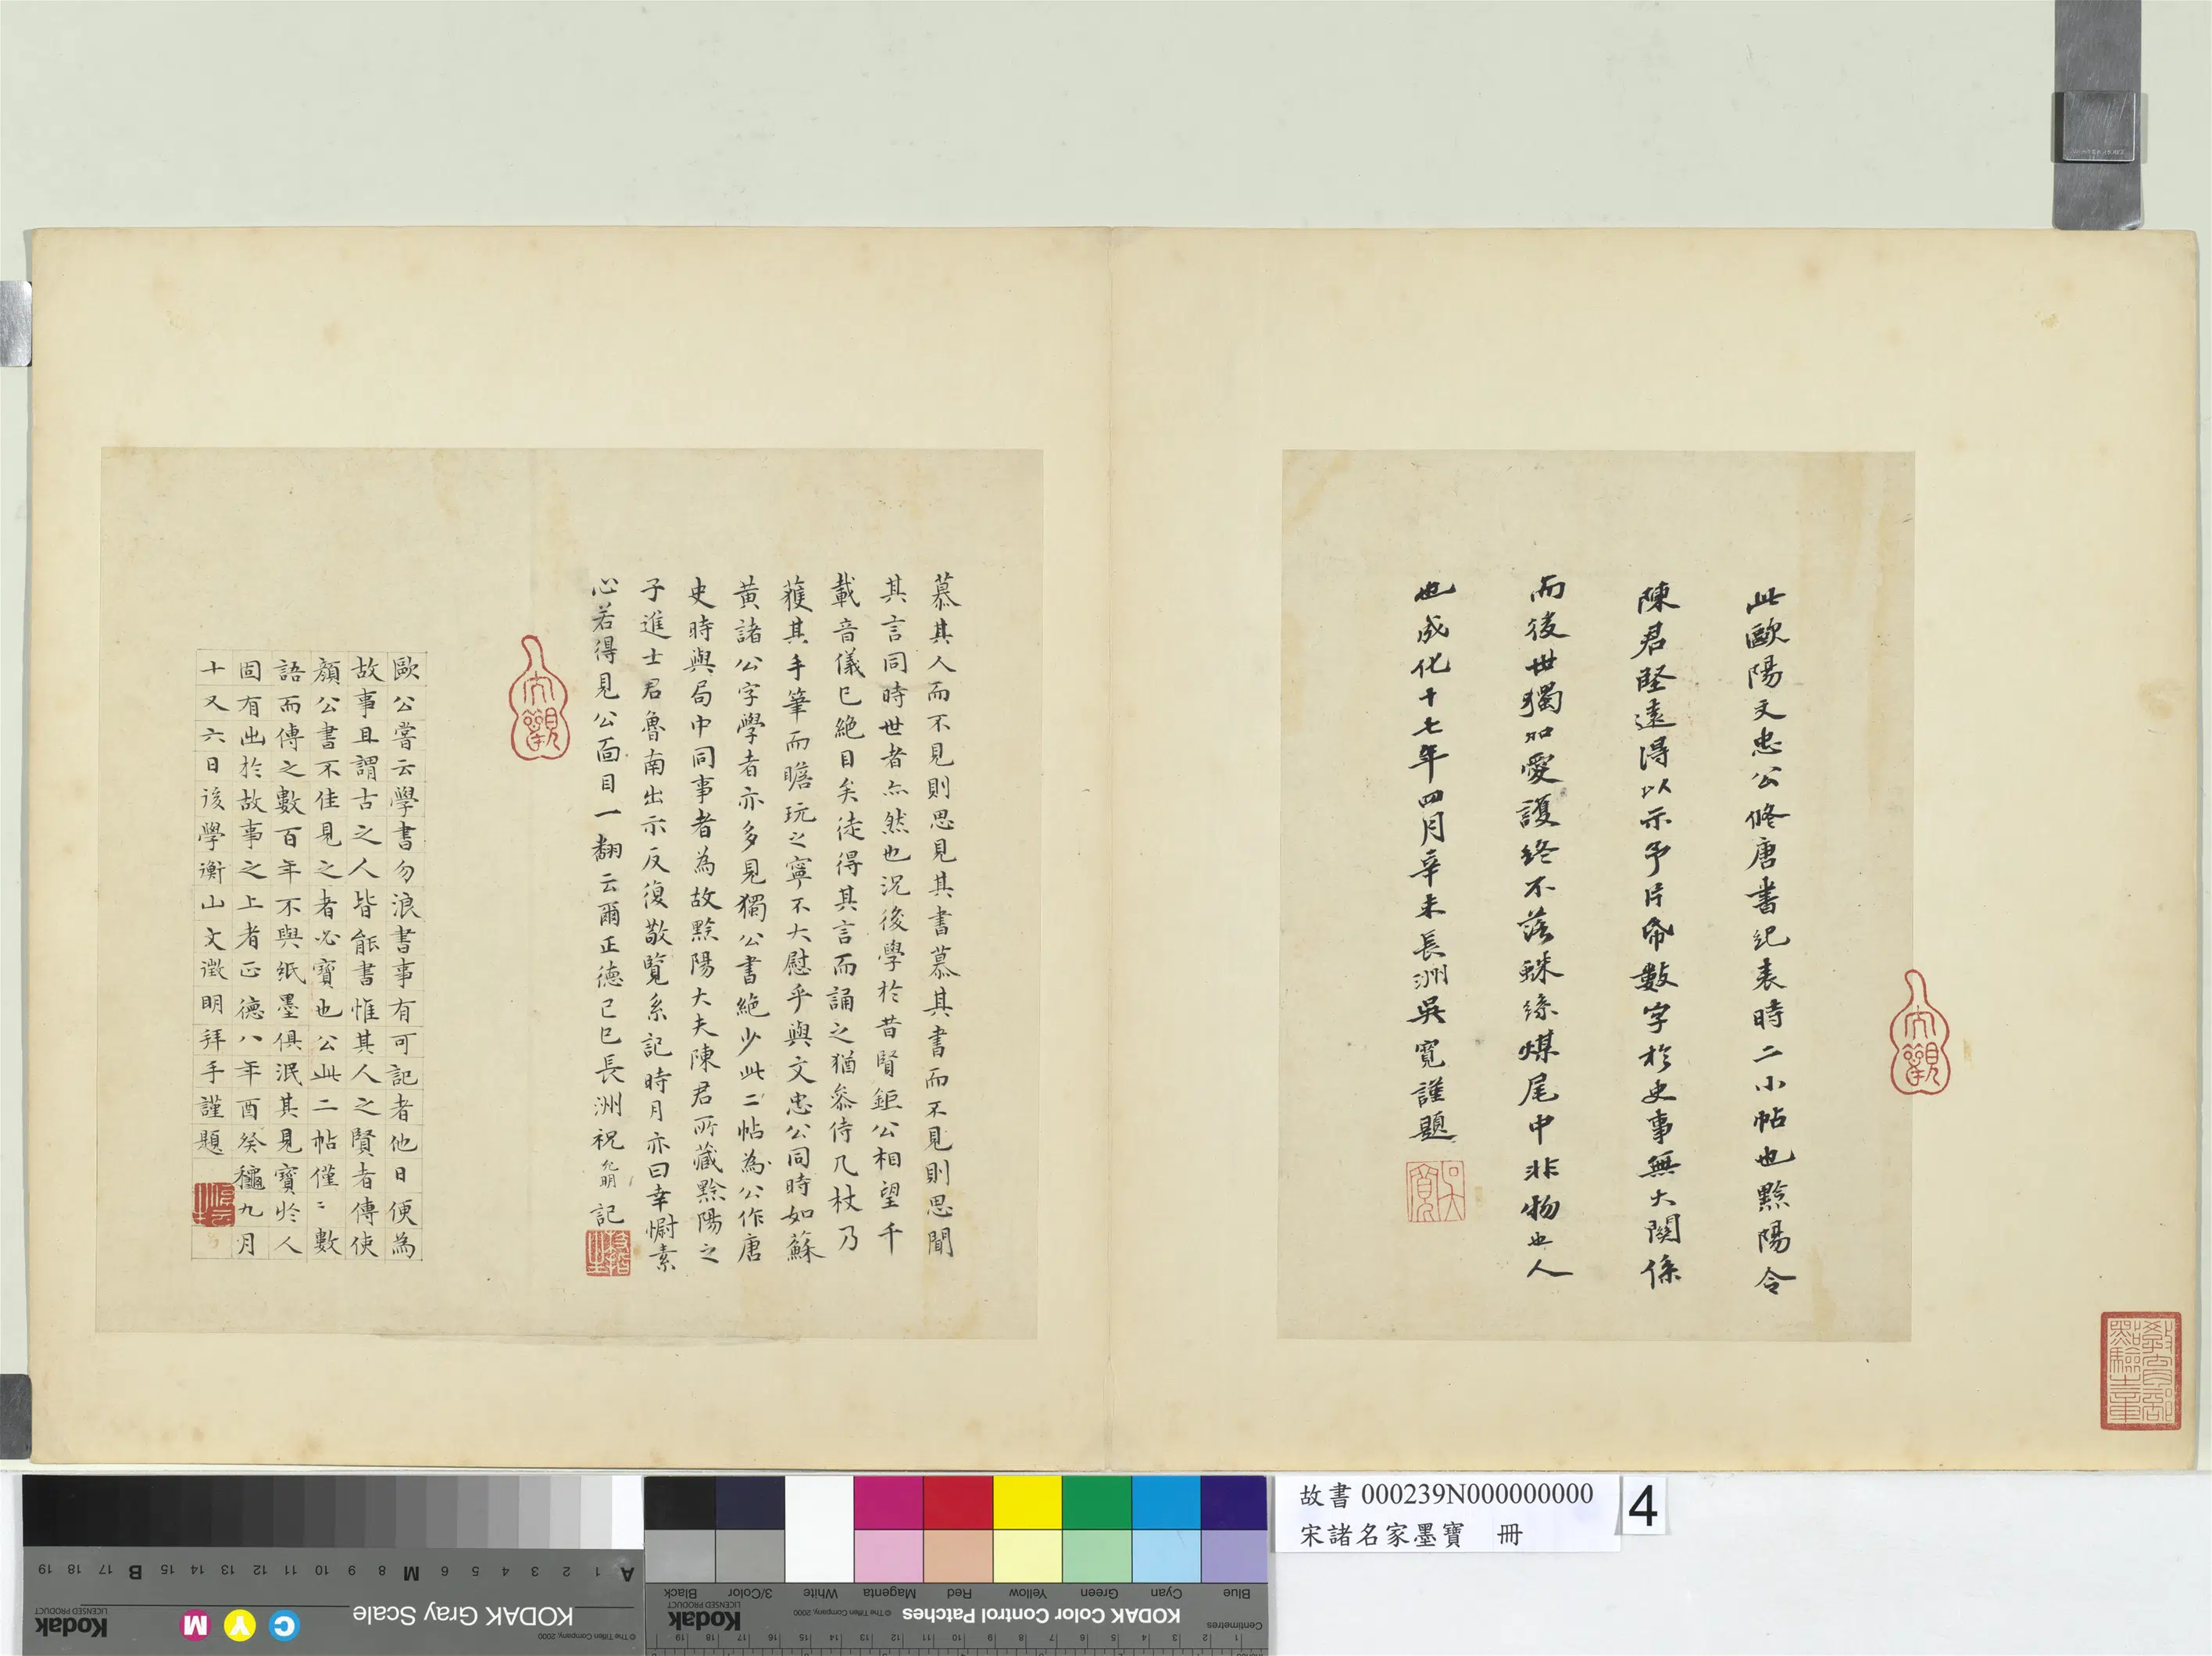 此歐陽文忠公脩唐書紀表時二小帖也黟陽令
陳君堅遠得以示予片帋數字於史事無大関係
而後世獨加愛護終不落蛛絲煤尾中非物也人
也成化十七年四月辛未長洲吳寬謹題
吳寬
大觀
慕其人而不見則思見其書慕其書而不見則思聞
其言同時世者亦然也況後學於昔賢鉅公相望千
載音儀已絶目矣徒得其言而誦之猶叅侍几杖乃
獲其手筆而瞻玩之寧不大慰乎與文忠公同時如蘇
黃諸公字學者亦多見獨公書絶少此二帖為公作唐
史時與局中同事者為故黟陽大夫陳君所藏黟陽之
子進士君魯南出示反復敬覧系記時月亦曰幸慰素
心若得見公面目一翻云爾正德己巳長洲祝允明記
大觀
歐公嘗云學書勿浪書事有可記者他日便為
故事且謂古之人皆能書惟其人之賢者傳使
顏公書不佳見之者必寶也公此二帖僅〻數
語而傳之數百年不與紙墨俱泯其見寶於人
固有出於故事之上者正德八年酉癸龝九月
十又六日後學衡山文徵明拜手謹題
教育部點驗之章
故書 000239N000000000
宋諸名家墨寶 冊
4
KODAK Gray Scale
Kodak
LICENSED PRODUCT
© The Tiffen Company, 2000
C Y M
A 1 2 3 4 5 6 M 8 9 10 11 12 13 14 15 B 17 18 19
KODAK Color Control Patches
Kodak
LICENSED PRODUCT
© The Tiffen Company, 2000
Blue Cyan Green Yellow Red Magenta White 3/Color Black
Centimetres
1 2 3 4 5 6 7 8 9 10 11 12 13 14 15 16 17 18 19